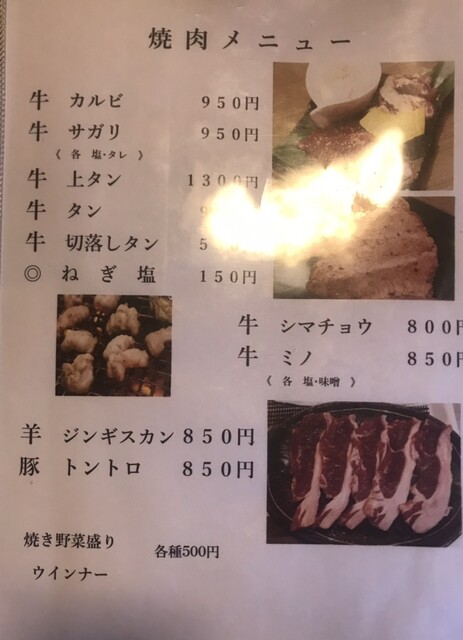 焼肉メニュー
牛 カルビ 950円
牛 サガリ 950円
《 各 塩・タレ 》
牛 上タン 1300円
牛 タン
牛 切落しタン
◎ ねぎ塩 150円
牛 シマチョウ 800円
牛 ミノ 850円
《 各 塩・味噌 》
羊 ジンギスカン 850円
豚 トントロ 850円
焼き野菜盛り 各種500円
ウインナー